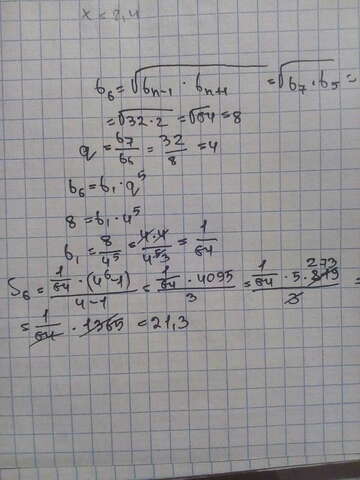 x < 2,4
b₆ = √(bₙ₋₁ · bₙ₊₁) = √(b₇ · b₅) =
= √(32 · 2) = √64 = 8
q = b₇/b₆ = 32/8 = 4
b₆ = b₁ · q⁵
8 = b₁ · 4⁵
b₁ = 8/4⁵ = = 1/64
S₆ = (1/64 · (4⁶-1))/(4-1) = (1/64 · 4095)/3 = (1/64 · 5 · 819 273)/3 =
= 1/64 · 1365 = 21,3